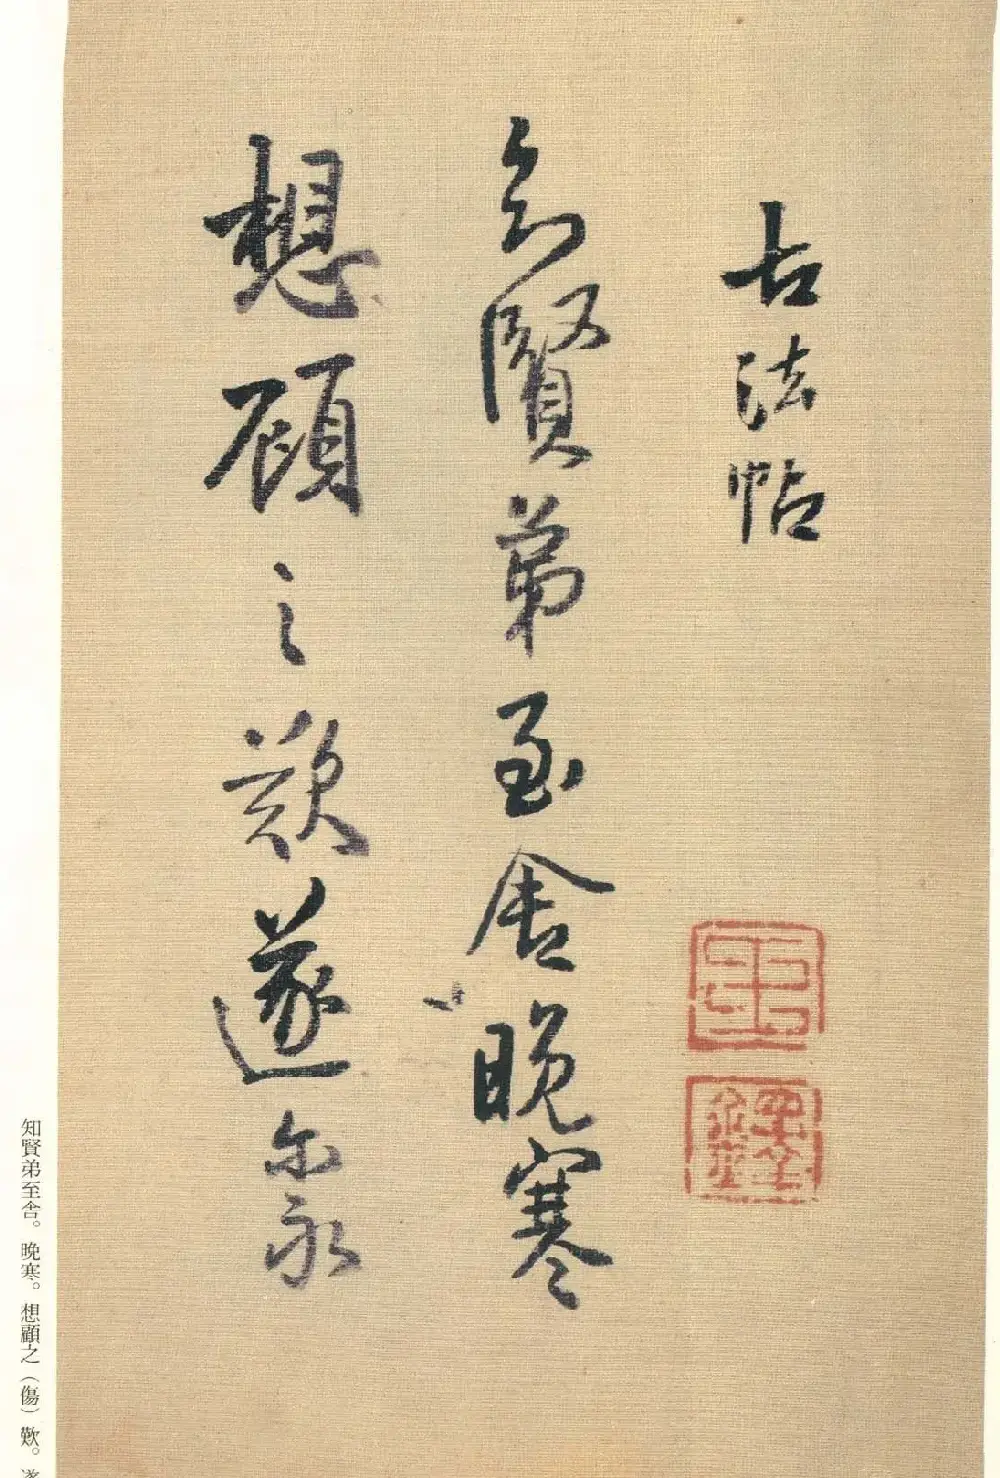 古法帖
知賢弟至舍晚寒
想顧之歎遂尔永
知賢弟至舍。晚寒。想顧之（傷）歎。